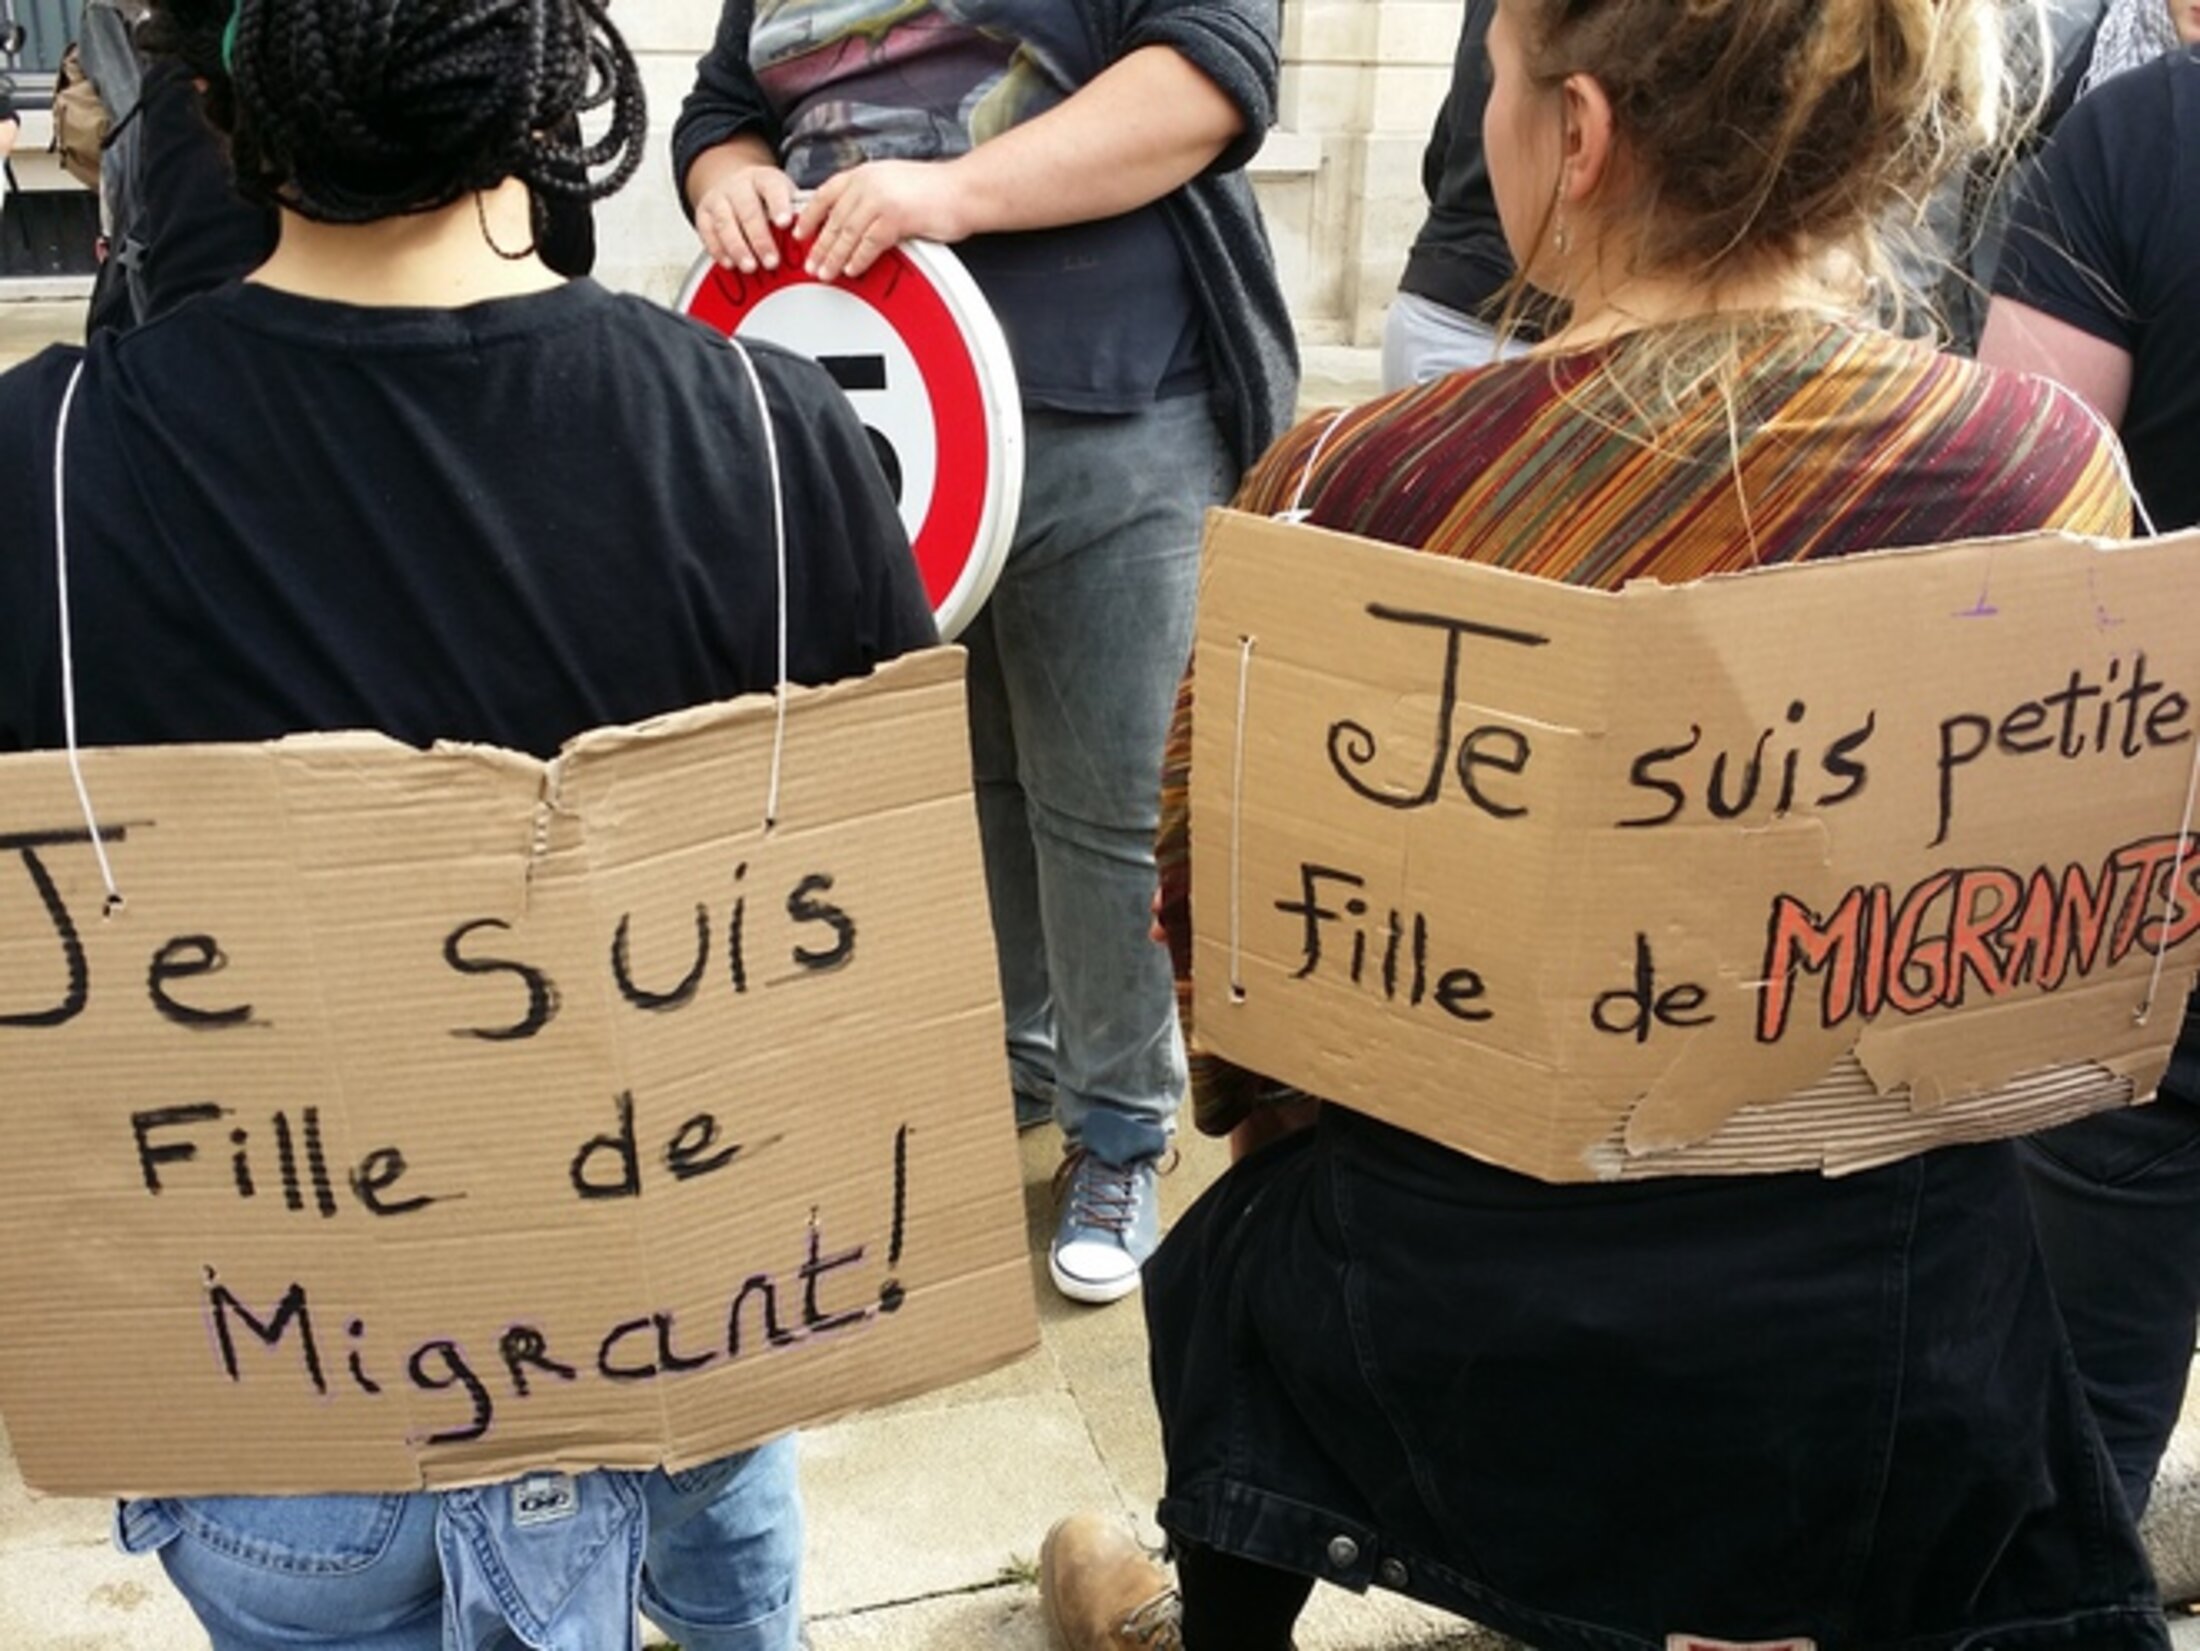 Je suis
Fille de
Migrant!
Je suis petite
fille de MIGRANTS
5